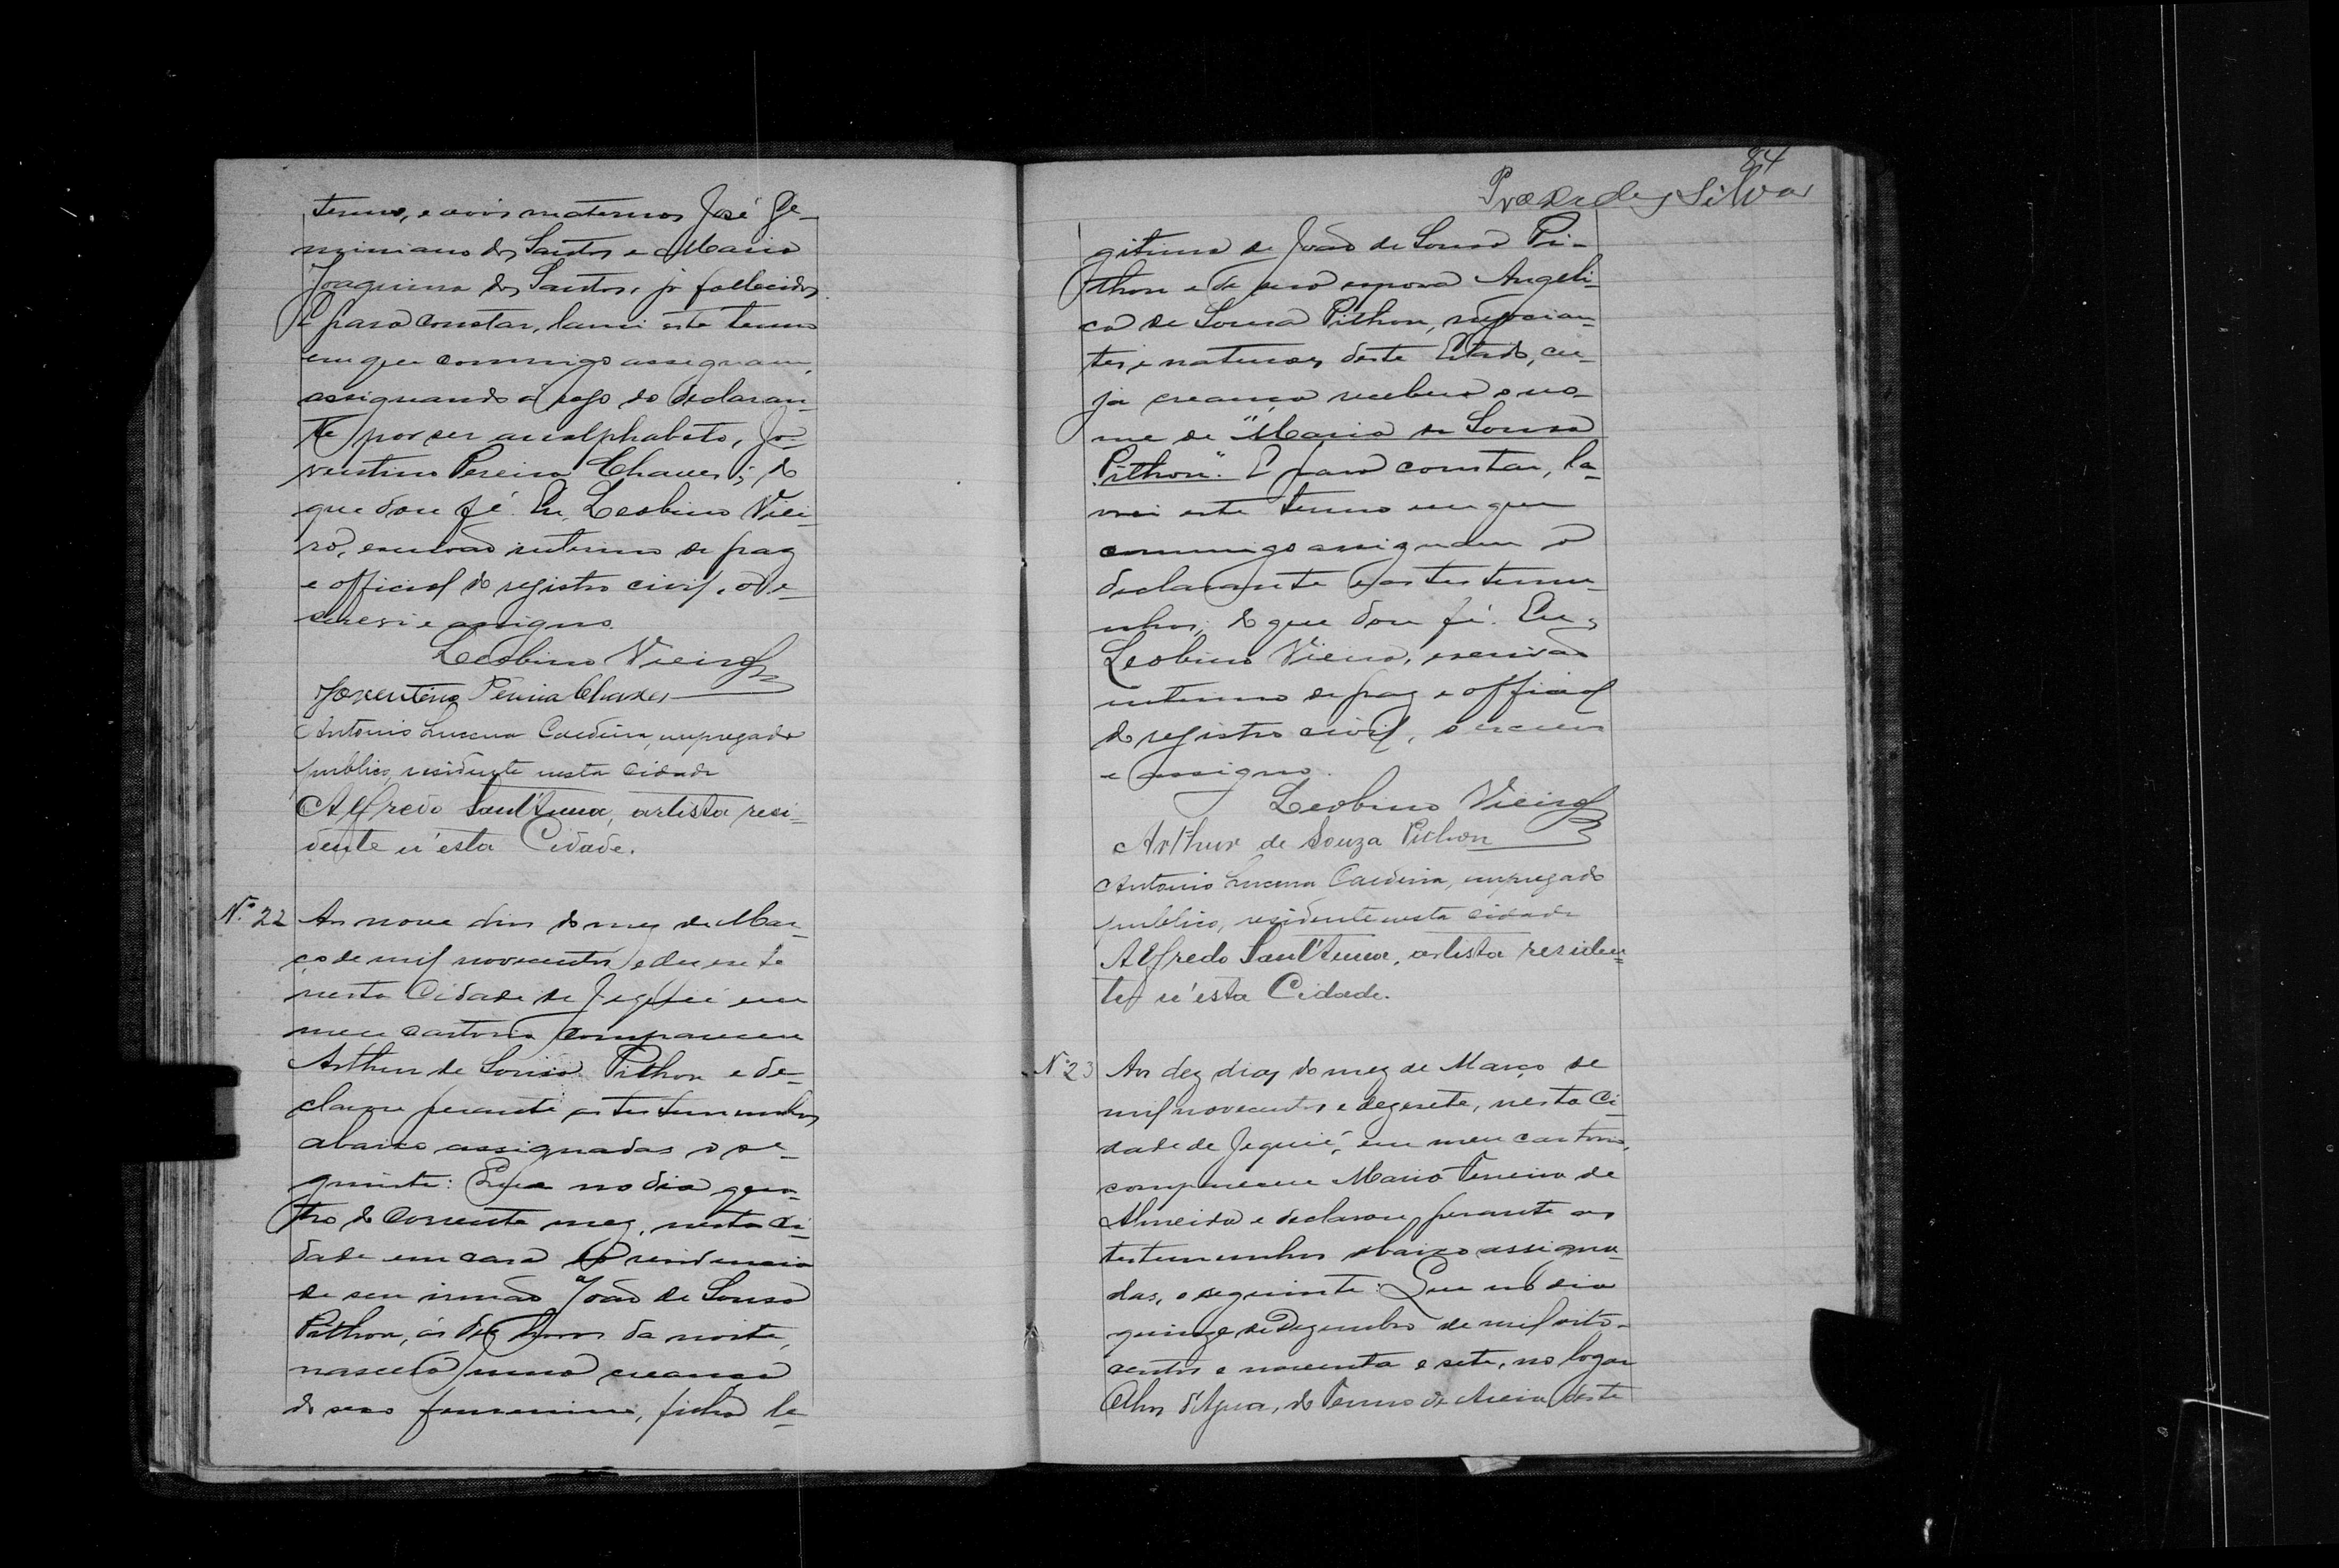 termo, e avós maternos José Ge-
miniano dos Santos e Maria
Joaquina dos Santos, já fallecidos.
E para constar, lavrei este termo
em que commigo assignam,
assignando á rogo do declaran-
te por ser analphabeto, Jo-
ventino Pereira Chaves; do
que dou fé. Eu, Leobino Viei-
ra, escrivão interino de paz
e official do registro civil, o es-
crevi e assigno.
Leobino Vieira
Joventino Pereira Chaves
Antonio Lucena Caldeira, empregado
publico, residente nesta cidade
Alfredo Sant'Anna, artista resi-
dente n'esta Cidade.
Nº 22 Aos nove dias do mez de Mar-
ço de mil novecentos e dezesete
nesta Cidade de Jequié em
meu cartorio compareceu
Arthur de Sousa Pithon e de-
clarou perante as testemunhas
abaixo assignadas o se-
guinte: Que no dia qua-
tro do corrente mez, nesta Ci-
dade em casa de residencia
de seu irmão João de Sousa
Pithon, ás dez horas da noite,
nasceu uma creança
do sexo femenino, filha le-
84
Praxedes Silva
gitima de João de Sousa Pi-
thon e de sua esposa Angeli-
ca de Sousa Pithon, negocian-
tes e naturaes deste Estado, cu-
ja creança recebeu o no-
me de "Maria de Sousa
Pithon". E para constar, la-
vrei este termo em que
commigo assignam o
declarante e as testemu-
nhas; do que dou fé. Eu,
Leobino Vieira, escrivão
interino de paz e official
do registro civil, o escrevi
e assigno.
Leobino Vieira
Arthur de Souza Pithon
Antonio Lucena Caldeira, empregado
publico, residente nesta cidade
Alfredo Sant'Anna, artista residen-
te n'esta Cidade.
Nº 23 Aos dez dias do mez de Março de
mil novecentos e dezesete, nesta Ci-
dade de Jequié, em meu cartorio,
compareceu Mario Ferreira de
Almeida e declarou perante as
testemunhas abaixo assigna-
das, o seguinte: Que no dia
quinze de Dezembro de mil oito-
centos e noventa e sete, no logar
Olhos d'Agua, do Termo de Areia deste